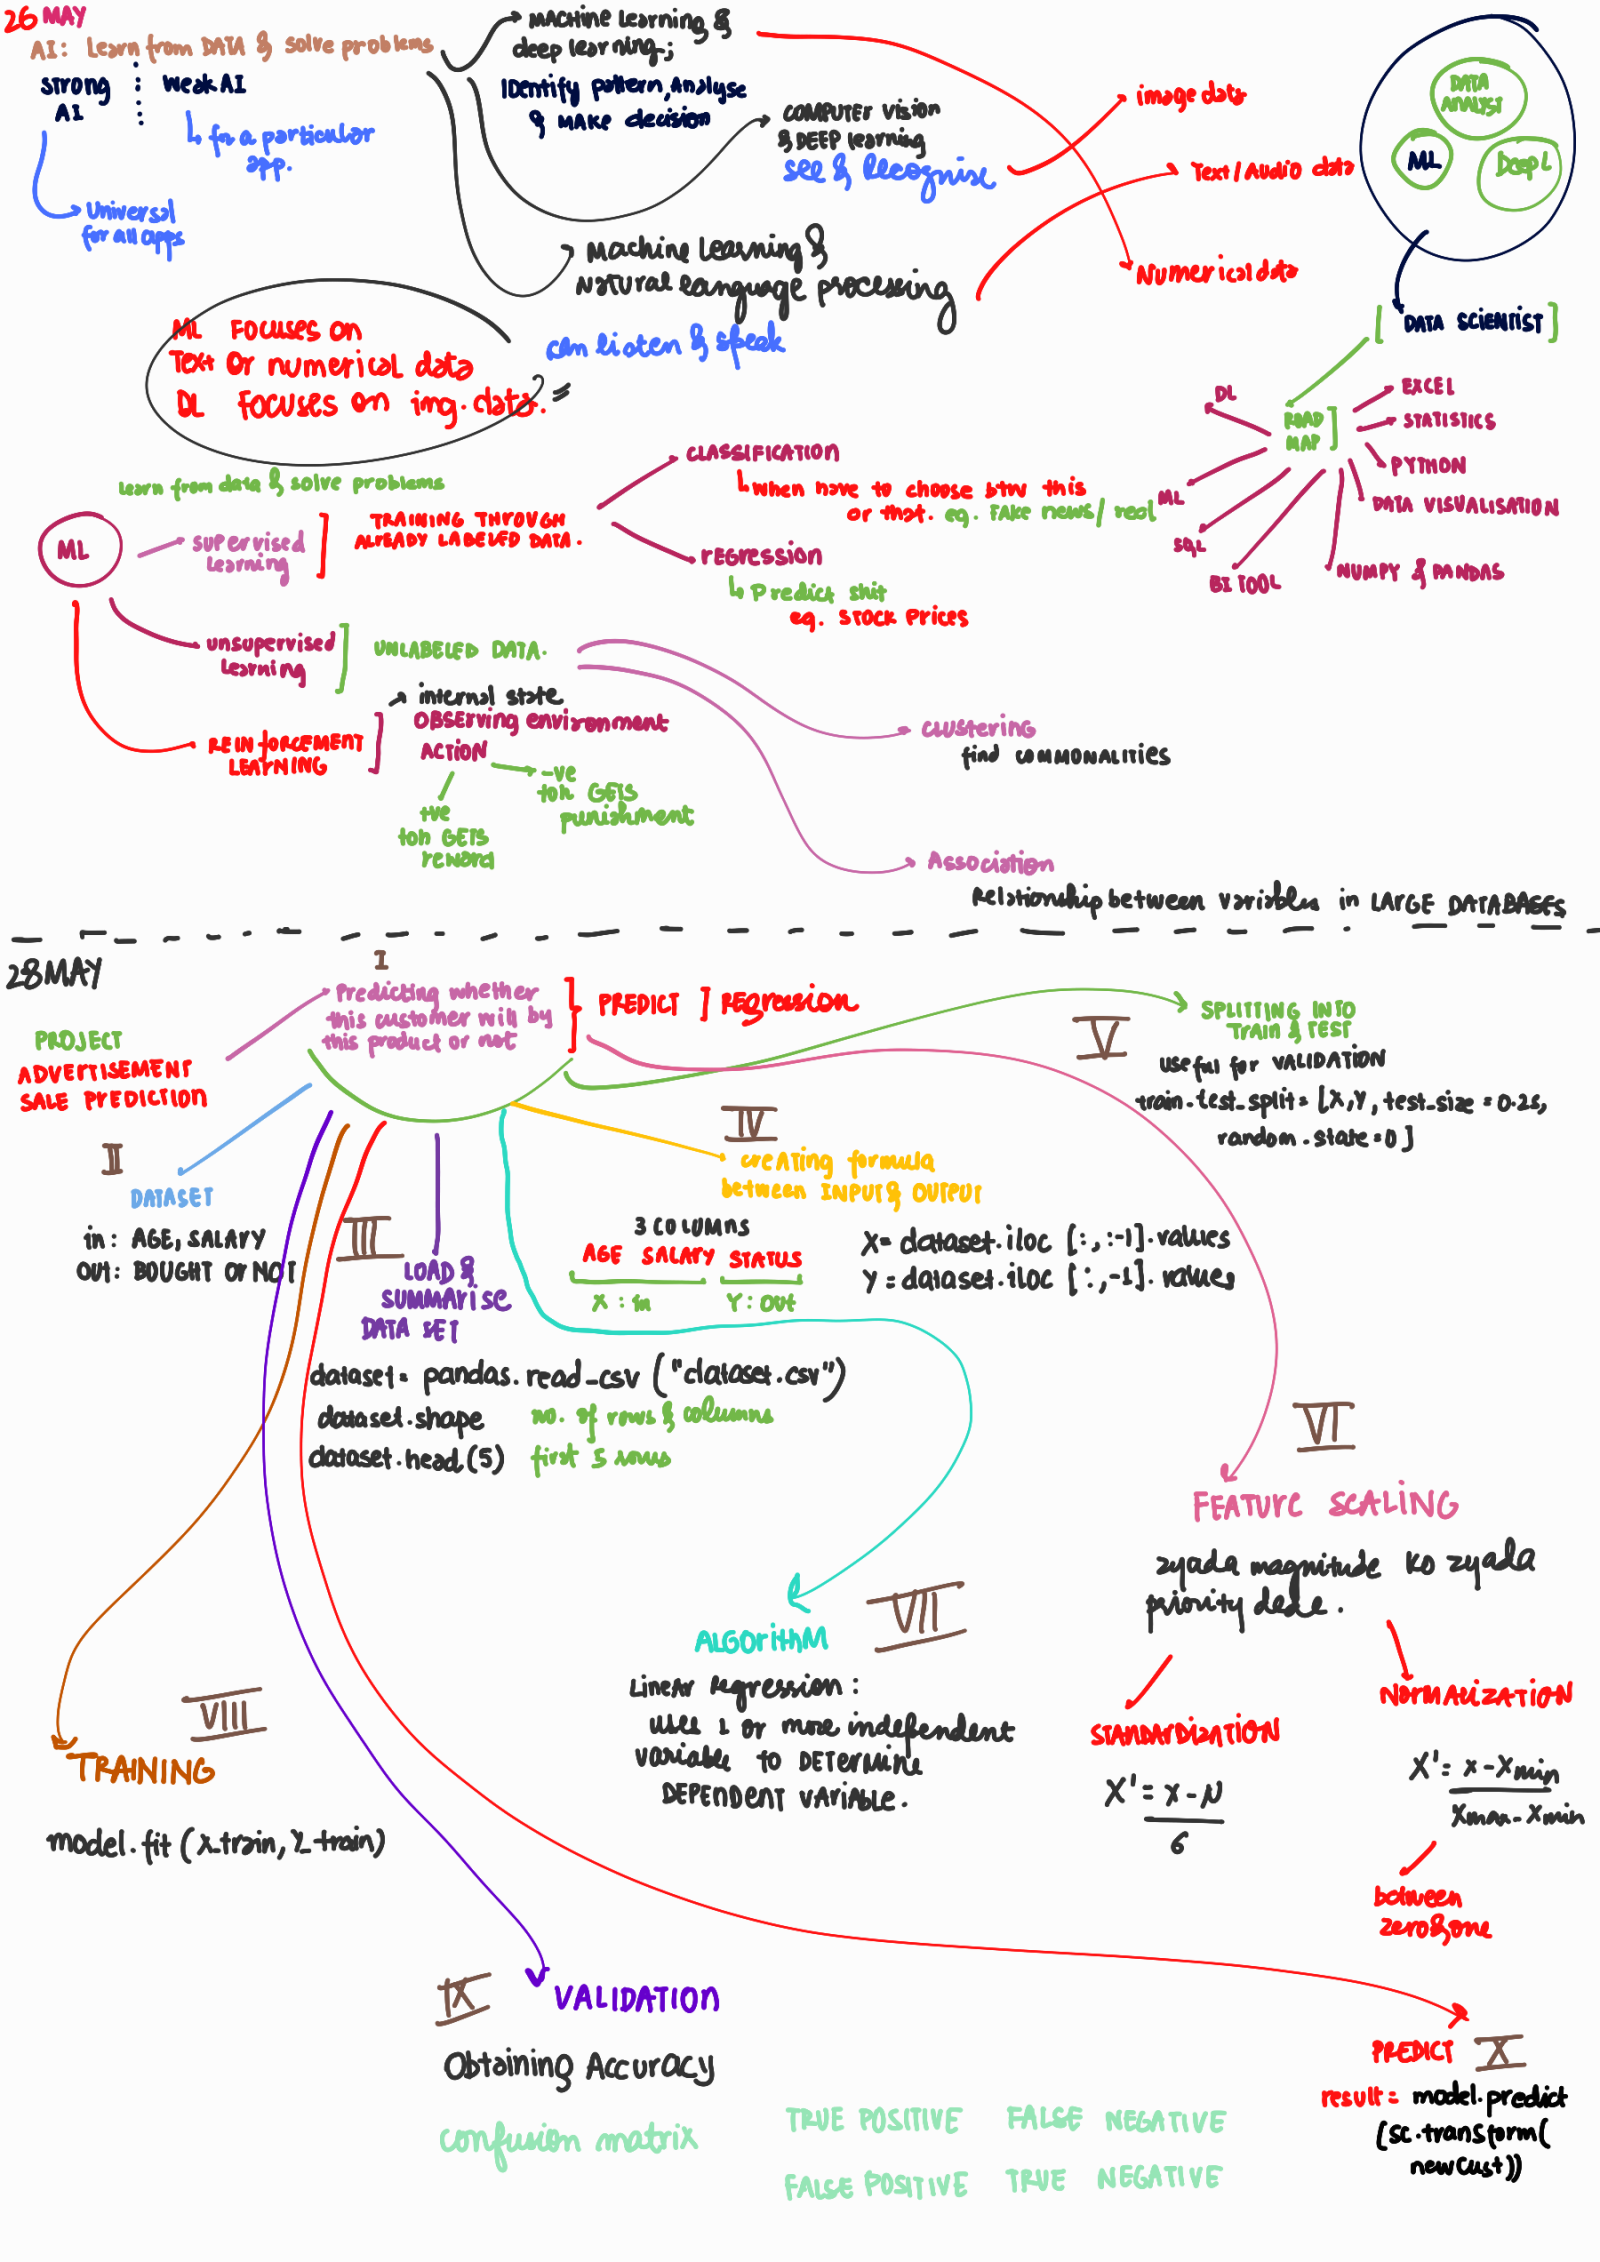 26 MAY
AI: Learn from DATA & solve problems
strong AI
weak AI
for a particular
app.
Universal
for all apps
MACHine learning &
deep learning;
IDentify pattern, Analyse
& MAKE decision
COMPUTER Vision
& DEEP learning
see & Recognise
Machine Learning &
Natural language processing
can listen & speak
image data
Text / Audio data
Numerical data
DATA
ANALYST
ML
Deep L
[ DATA SCIENTIST ]
ROAD
MAP ]
DL
ML
SQL
BI TOOL
EXCEL
STATISTICS
PYTHON
DATA VISUALISATION
NUMPY & PANDAS
ML FOCUSES ON
Text Or numerical data
DL FOCUSES on img. data.
learn from data & solve problems
ML
supervised
learning
TRAINING THROUGH
ALREADY LABELED DATA.
CLASSIFICATION
when have to choose btw this
or that. eg. FAKE news / real
rEGression
Predict shit
eg. STOCK PRICES
unsupervised
learning
UNLABELED DATA.
clustering
find COMMONALITIES
Association
Relationship between variables in LARGE DATABASES
REINFORCEMENT
LEARNING
internal state
OBSErving environment
ACTION
+ve
toh GETS
reward
-ve
toh GETS
punishment
28 MAY
PROJECT
ADVERTISEMENT
SALE PREDICTION
I
Predicting whether
this customer will by
this product or not
PREDICT ] REGression
II
DATASET
in: AGE, SALARY
OUT: BOUGHT OR NOT
III
LOAD &
SUMMARise
DATA SET
dataset= pandas.read_csv ("dataset.csv")
dataset.shape no. of rows & columns
dataset.head(5) first 5 rows
IV
creating formula
between INPUT & OUTPUT
3 COLUMNS
AGE SALARY STATUS
X : in Y : OUT
X= dataset.iloc [:,:-1].values
Y = dataset.iloc [:,-1].values
V
SPLITTING INTO
TRAIN & TEST
useful for VALIDATION
train-test_split= [X,Y, test_size = 0.25,
random.state=0]
VI
FEATURE SCALING
zyada magnitude ko zyada
priority dede.
STANDARDIZATION
X' = x - μ
σ
NORMALIZATION
X' = x - xmin
xmax - xmin
between
zero & one
VII
ALGORithM
Linear Regression:
uses 1 or more independent
variable to DETErmine
DEPENDENT VARIABLE.
VIII
TRAINING
model.fit (X_train, Y_train)
IX
VALIDATION
Obtaining Accuracy
confusion matrix
TRUE POSITIVE FALSE NEGATIVE
FALSE POSITIVE TRUE NEGATIVE
PREDICT X
result = model.predict
(sc.transform(
newCust))